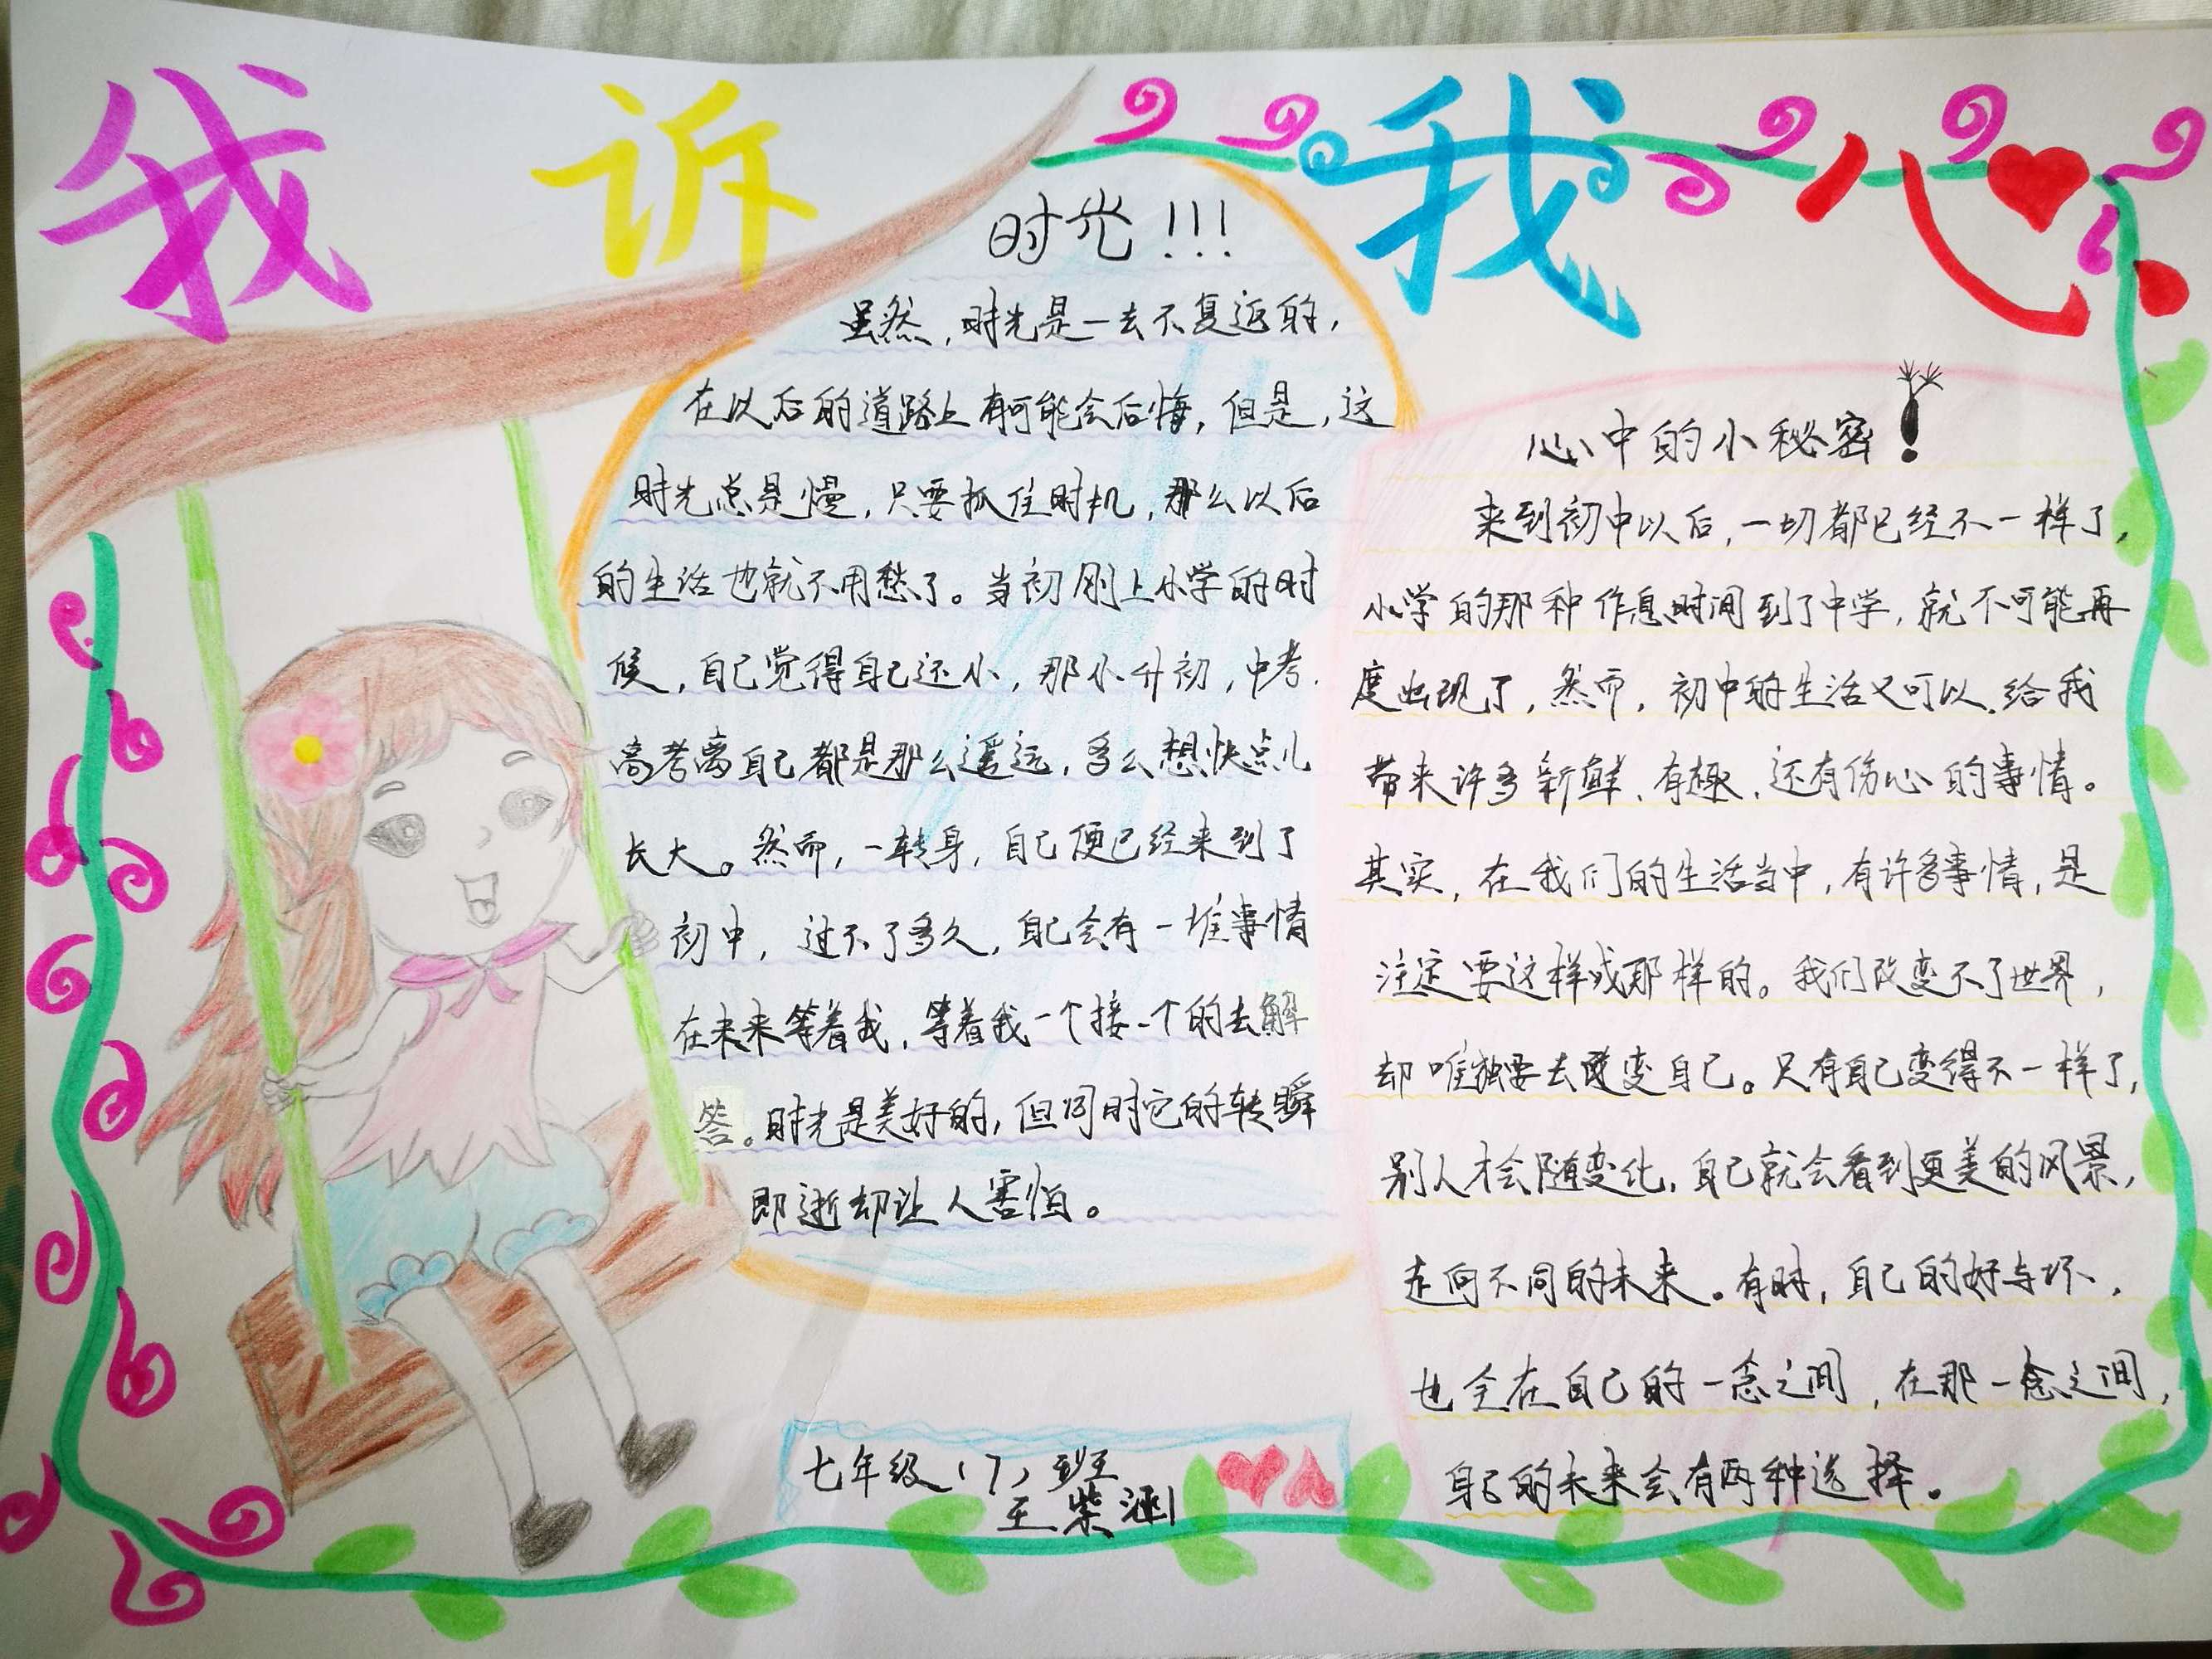 我诉我心
时光!!!
虽然，时光是一去不复返的，
在以后的道路上有可能会后悔，但是，这
时光总是慢，只要抓住时机，那么以后
的生活也就不用愁了。当初刚上小学的时
候，自己觉得自己还小，那小升初，中考.
高考离自己都是那么遥远，多么想快点儿
长大。然而，一转身，自己便已经来到了
初中，过不了多久，自己会有一堆事情
在未来等着我，等着我一个接一个的去解
答。时光是美好的，但同时它的转瞬
即逝却让人害怕。
心中的小秘密!
来到初中以后，一切都已经不一样了，
小学的那种作息时间到了中学，就不可能再
度出现了，然而，初中的生活又可以给我
带来许多新鲜、有趣、还有伤心的事情。
其实，在我们的生活当中，有许多事情，是
注定要这样或那样的。我们改变不了世界，
却唯独要去改变自己。只有自己变得不一样了，
别人才会随变化，自己就会看到更美的风景，
走向不同的未来。有时，自己的好与坏、
也全在自己的一念之间，在那一念之间，
自己的未来会有两种选择。
七年级（7）班
王紫涵